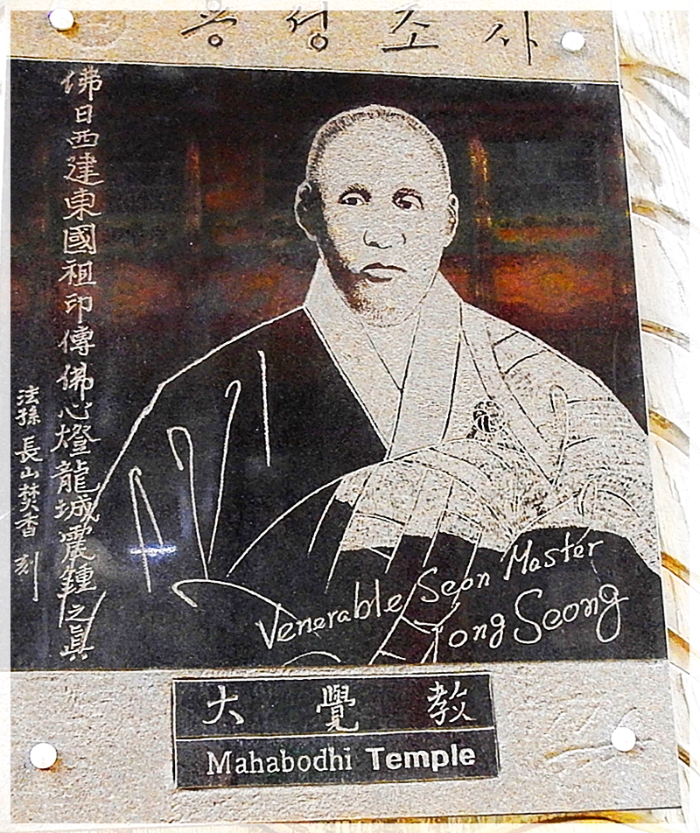 용성조사
佛日西建東國祖印傳佛心燈龍城震鍾之眞
法孫 長山 焚香 刻
Venerable Seon Master
Yong Seong
大覺教
Mahabodhi Temple